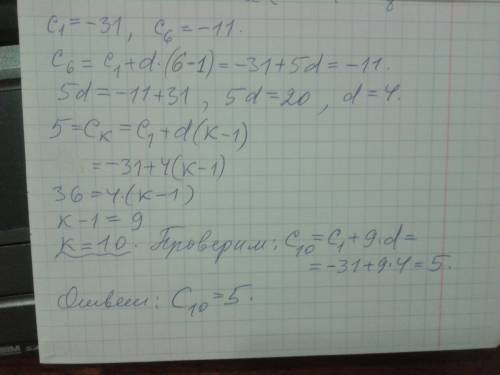 c₁=-31, c₆=-11.
c₆=c₁+d·(6-1)=-31+5d=-11.
5d=-11+31, 5d=20, d=4.
5=cₖ=c₁+d(k-1)
=-31+4(k-1)
36=4·(k-1)
k-1=9
k=10. Проверим: c₁₀=c₁+9·d=
=-31+9·4=5.
Ответ: c₁₀=5.